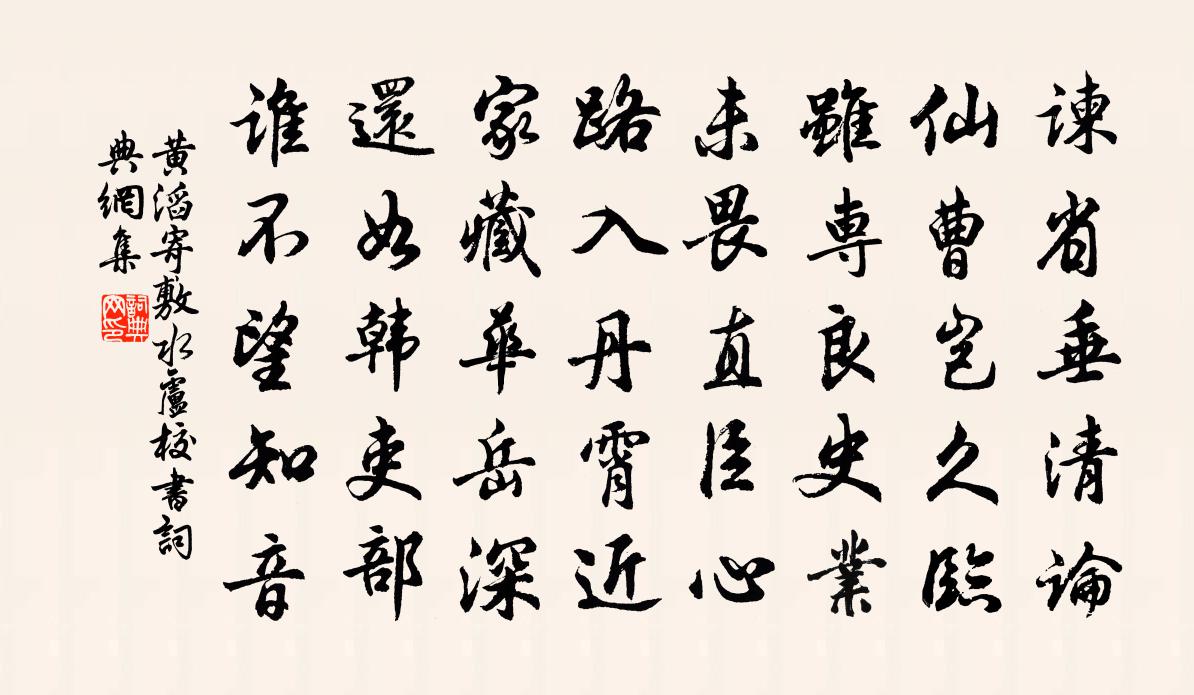 諫省垂清論
仙曹岂久臨
雖専良史業
未畏直臣心
路入丹霄近
家藏華岳深
還如韩吏部
誰不望知音
黄滔寄敷水盧校書詞
典網集
詞典
网印